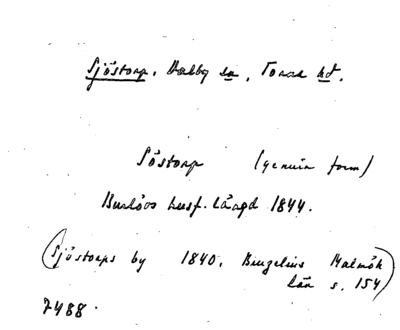 Sjöstorp, Dalby sn, Torna hd.
Söstorp (genuin form)
Burlövs husf. längd 1844.
(Sjöstorps by 1840, Bruzelius Malmöh
län s. 154)
7488.